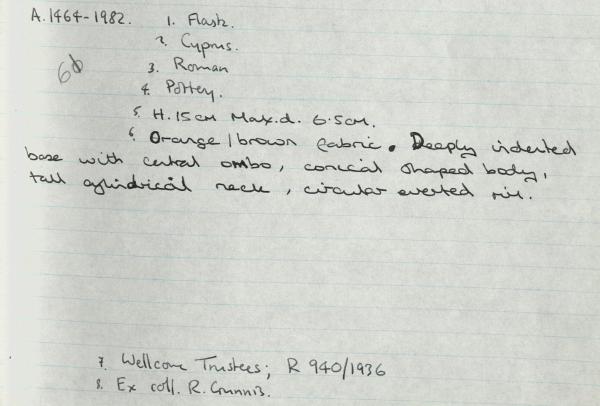 A.1464-1982. 1. Flask.
2. Cyprus.
3. Roman
4. Pottery.
5. H. 15cm Max.d. 6.5cm.
6. Orange/brown fabric. Deeply indented
base with central ombo, conical shaped body,
tall cylindrical neck, circular everted rim.
7. Wellcome Trustees; R 940/1936
8. Ex coll. R. Gunnis.